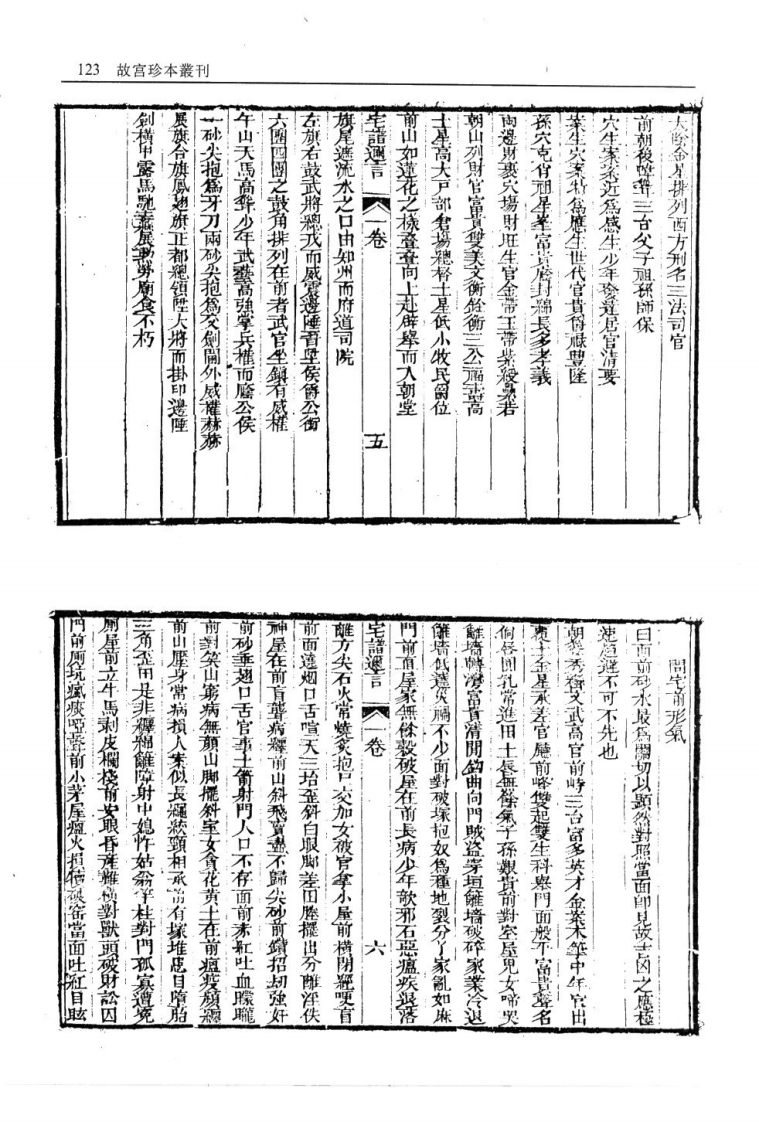 123 故宫珍本叢刊
太陰金星排列西方刑名三法司官
前朝後幛聳三台父子祖孫師保
穴生案案近爲感生少年發達居官清要
案生穴案特爲應生世代官貴爵祿豊隆
孫穴克侑祖星峯富貴席封綿長多孝義
向邊財裹穴塲財旺生官金帶玉帶紫綬纍若
朝山列財官富貴雙美文衡銓衡三公福壽高
土星高大戸部倉塲總督土星低小牧民爵位
前山如蓮花之樣叠叠向上赴辟擧而入朝堂
宅譜邇言 一卷 五
旗尾遊流水之口由知州而府道司院
左旗右鼓武將總戎而威震邊陲晋呈侯爵公銜
六團四圍之鼓角排列在前者武官坐鎮有威權
午山天馬高聳少年武藝高強掌兵權而膺公侯
一砂尖抱爲牙刀兩砂尖抱爲交劍閫外威權赫赫
展旗台旗鳳廻旗正都總領陞大將而掛印邊陲
劍橫甲露馬馳纛展勤勞廟食不朽
問宅前形氣
曰面前砂水最爲關切以顯然對照當面即見故吉凶之應極
速趋避不可不先也
朝巒秀發文武高官前峙三台富多英才金案木筆中年官出
覆土金星承差官廳前峰雙起雙生科舉門面般平富貴聲名
倘唇圓孔常進田土唇無餘氣子孫艱貴前對空屋兒女啼哭
籬墻轉灣富貴清閒鈎曲向門賊盗穿垣籬墻破碎家業冷退
籬墻似遶災禍不少面對破塚抱奴爲種地裂分丫家亂如麻
門前直屋家無餘穀破屋在前長病少年欹邪石惡瘟疾退落
宅譜邇言 一卷 六
離方尖石火常燒炙抱戸交加女被官拿小屋前橫閉經哽盲
前面遶烟口舌喧天三坮歪斜白眼脚差田塍擺出分離淫佚
神屋在前盲聾病纒前山斜飛賣盡不歸尖砂前鑽招刼強奸
前砂垂翅口舌官事土箭射門人口不存面前赤紅吐血朦矓
前對哭山癆病無顏山脚擺斜室女貪花黄土在前瘟疫顛癲
前山壓身常病損人案似長繩縊頸相承前有塚堆患目墮胎
三角歪田是非纒綿離障射中媳忤姑翁竿柱對門孤寡遭冤
厠屋前立牛馬剥皮欄棧前安眼昏産難橫對獸頭破財訟囚
門前厠坑瘋痰啞聾前小茅屋瘟火損傷磚窑當面吐紅目眩